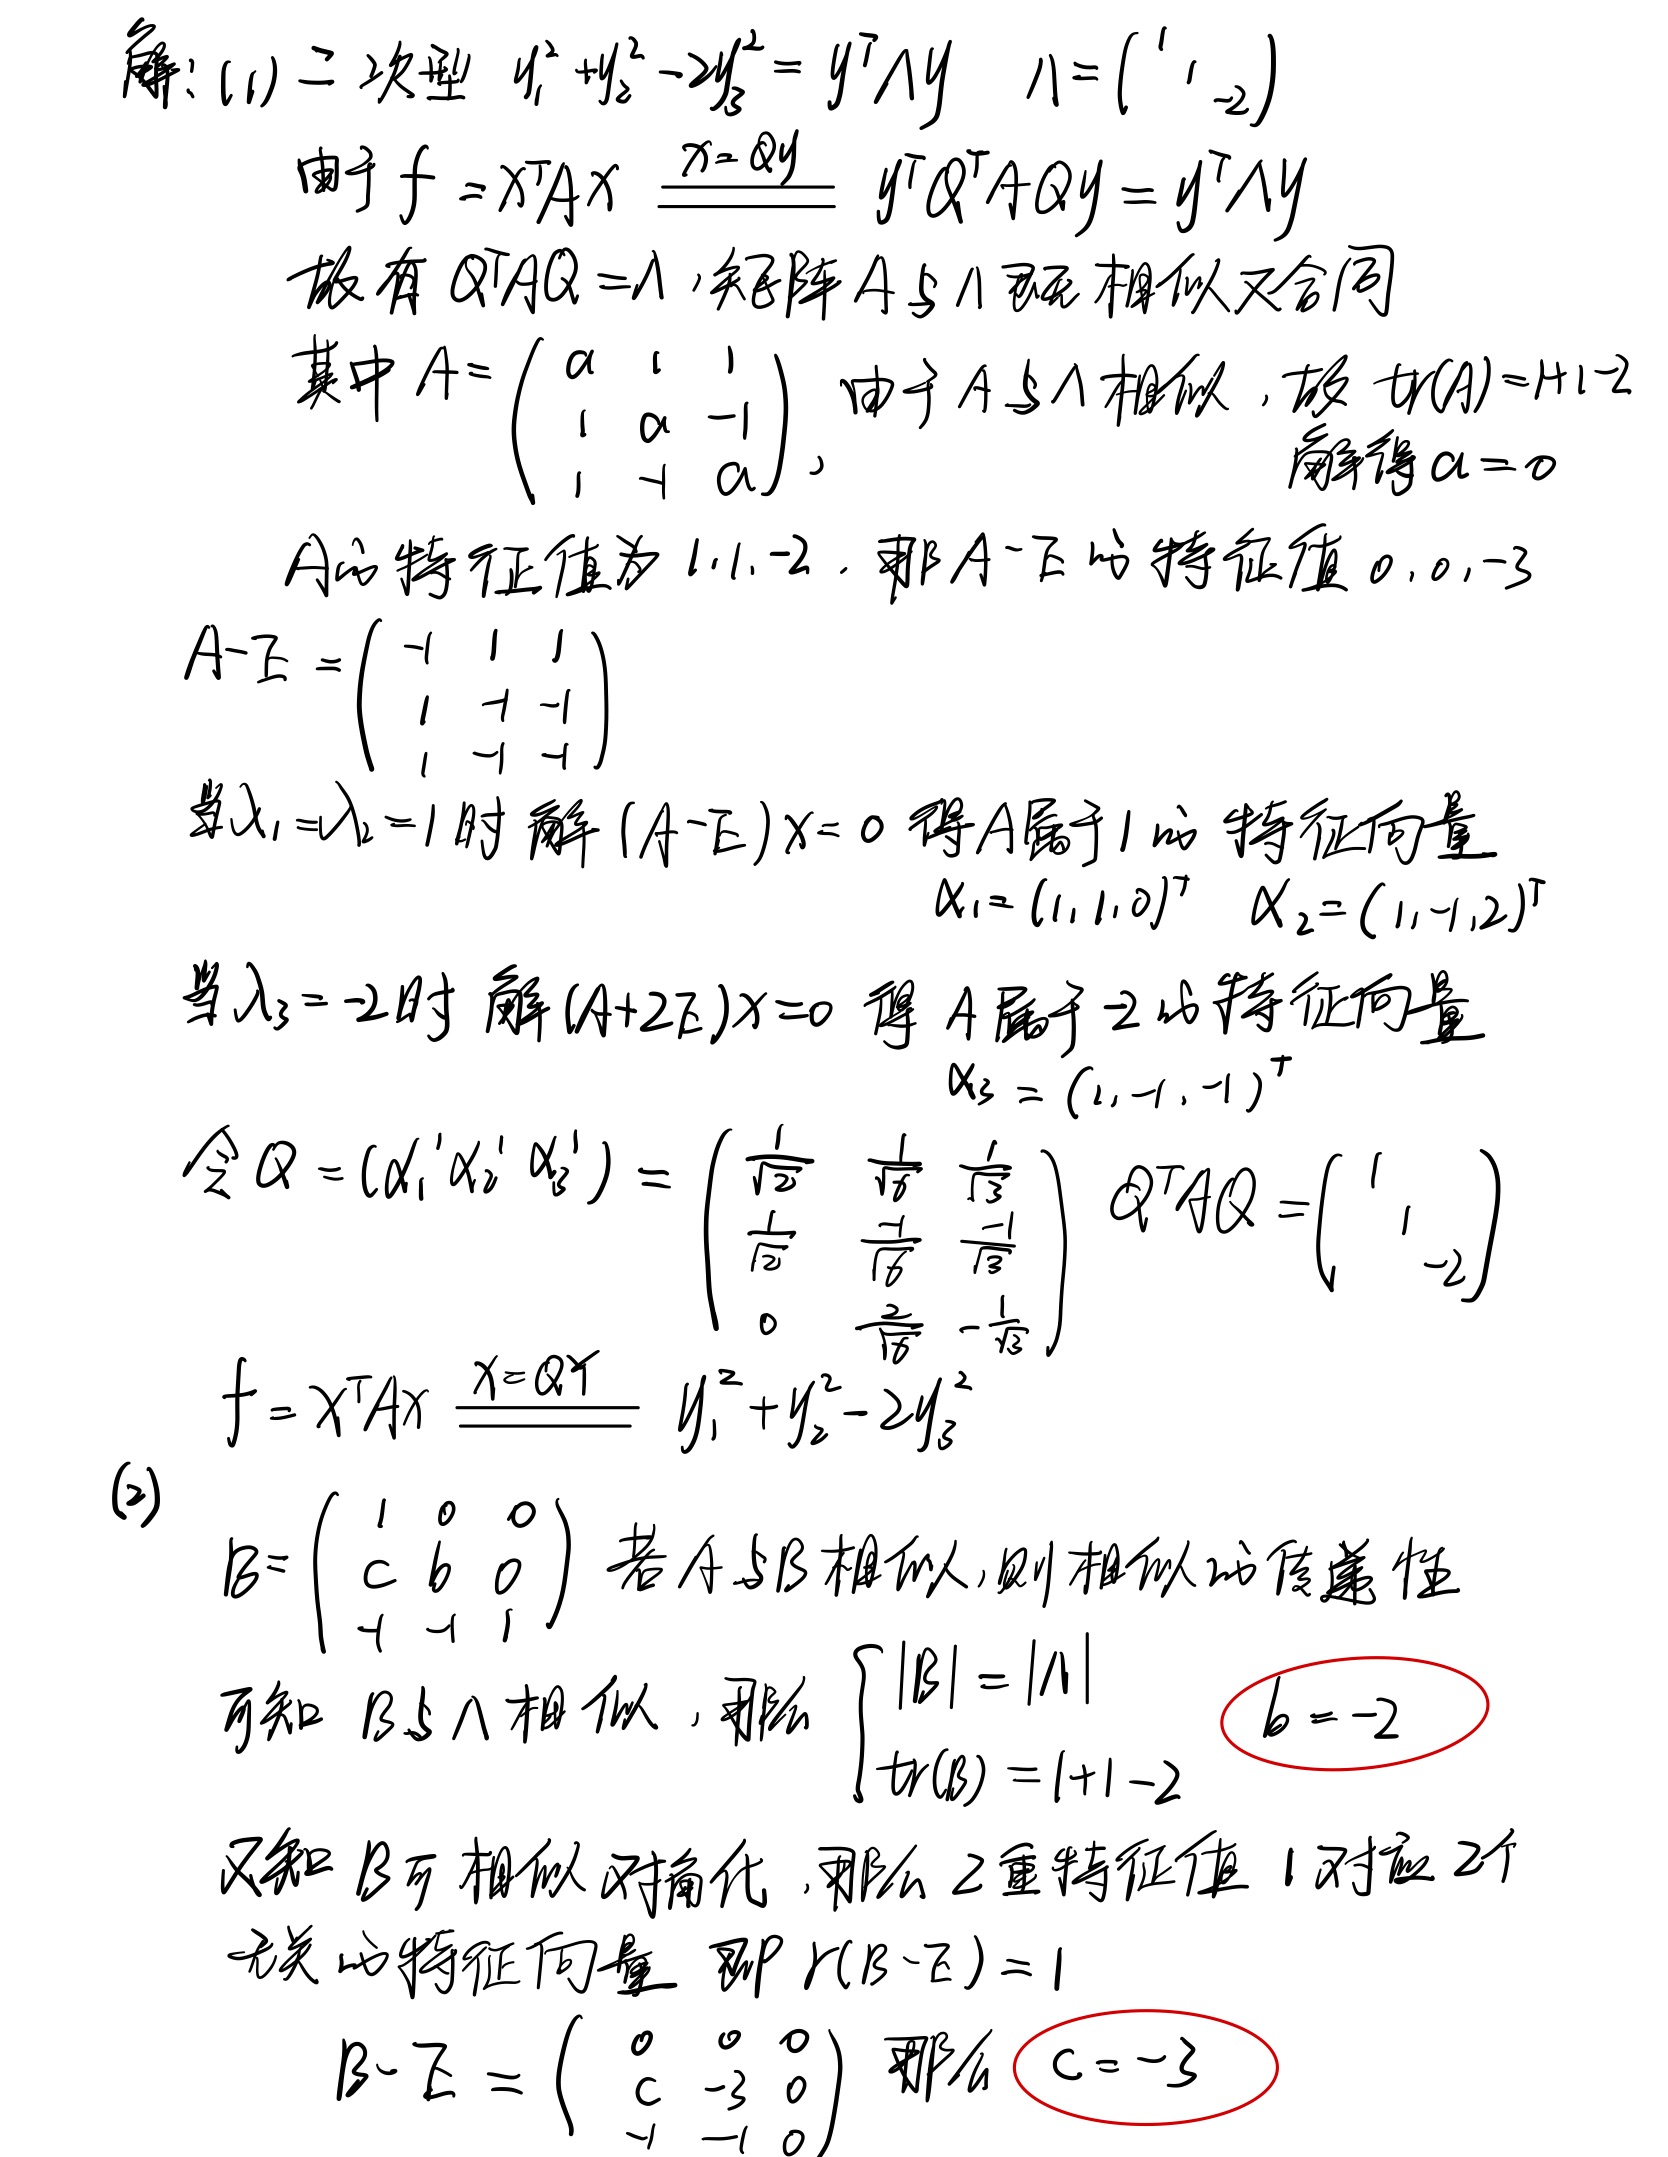 解:(1) 二次型 y₁²+y₂²-2y₃² = yᵀΛy Λ=(1 1 -2)
由于 f = xᵀAx x=Qy yᵀQᵀAQy = yᵀΛy
故有 QᵀAQ=Λ,矩阵A与Λ既相似又合同
其中 A= (a 1 1
1 a -1
1 -1 a), 由于A与Λ相似,故 tr(A)=1+1-2
解得 a=0
A的特征值为 1,1,-2. 那A-E的特征值 0,0,-3
A-E = (-1 1 1
1 -1 -1
1 -1 -1)
当λ₁=λ₂=1时 解(A-E)x=0 得A属于1的特征向量
α₁=(1,1,0)ᵀ α₂=(1,-1,2)ᵀ
当λ₃=-2时 解(A+2E)x=0 得 A属于-2的特征向量
α₃=(1,-1,-1)ᵀ
令Q=(α₁' α₂' α₃') = (1/√2 1/√6 1/√3
1/√2 -1/√6 -1/√3
0 2/√6 -1/√3) QᵀAQ=(1 1 -2)
f=xᵀAx x=QY y₁²+y₂²-2y₃²
(2)
B= (1 0 0
c b 0
-1 -1 1) 若A与B相似,则相似的传递性
可知 B与Λ相似,那么 {|B|=|Λ|
tr(B)=1+1-2 b=-2
又知B可相似对角化,那么2重特征值1对应2个
无关的特征向量 即r(B-E)=1
B-E = (0 0 0
c -3 0
-1 -1 0) 那么 c=-3